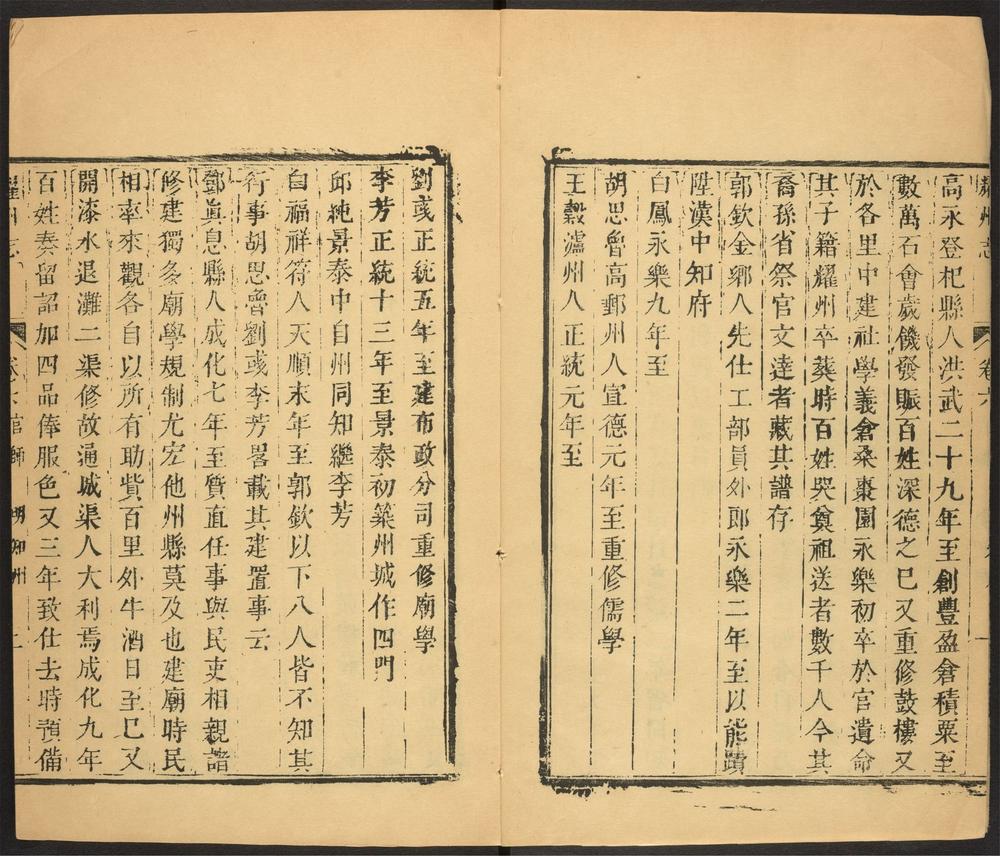 耀州志 卷六
高永登杞縣人洪武二十九年至創豐盈倉積粟至
數萬石會歲饑發賑百姓深德之巳又重修鼓樓又
於各里中建社學義倉桑棗園永樂初卒於官遺命
其子籍耀州卒葬時百姓哭奠祖送者數千人今其
裔孫省祭官文達者藏其譜存
郭欽金鄉人先仕工部員外郎永樂二年至以能蹟
陞漢中知府
白鳳永樂九年至
胡思魯高郵州人宣德元年至重修儒學
王穀瀘州人正統元年至
劉彧正統五年至建布政分司重修廟學
李芳正統十三年至景泰初築州城作四門
邱純景泰中自州同知繼李芳
白福祥符人天順末年至郭欽以下八人皆不知其
行事胡思魯劉彧李芳畧載其建置事云
鄧真息縣人成化七年至質直任事與民吏相親諸
修建獨多廟學規制尤宏他州縣莫及也建廟時民
相率來觀各自以所有助貲百里外牛酒日至巳又
開漆水退灘二渠修故通城渠人大利焉成化九年
百姓奏留詔加四品俸服色又三年致仕去時預備
耀州志 卷之六官師 明知州 二